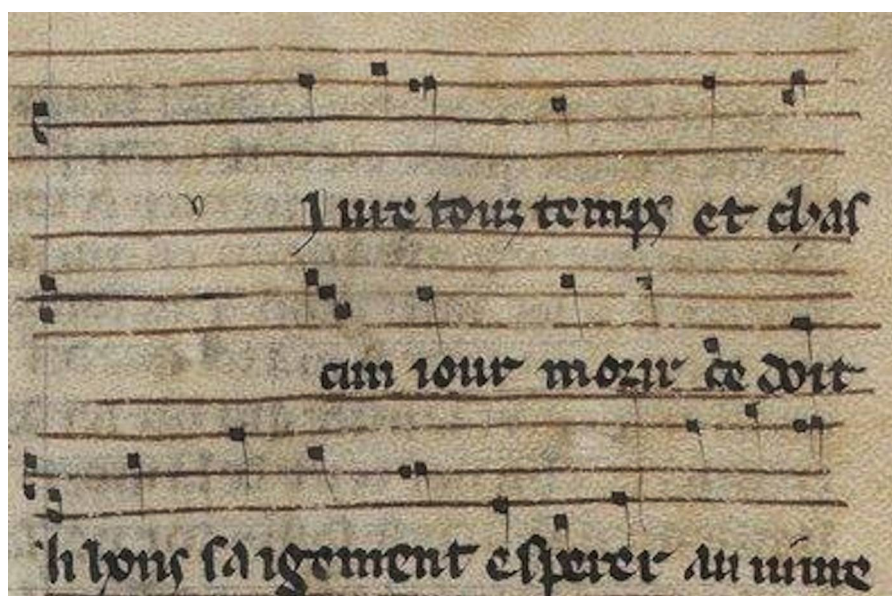 v Jure touz temps et chas
cun iour morir ce doit
li hons saigement esperer au uiure